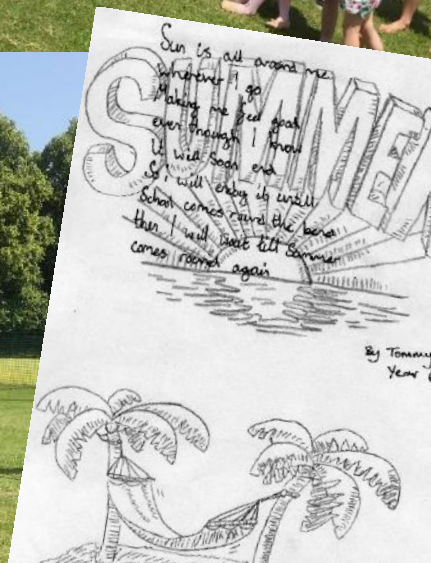 SUMMER
Sun is all around me
wherever I go
Making me feel good
even though I know
it will soon end
So i will enjoy it untill
School comes round the bend
then I will wait till Summer
comes round again
By Tommy
Year